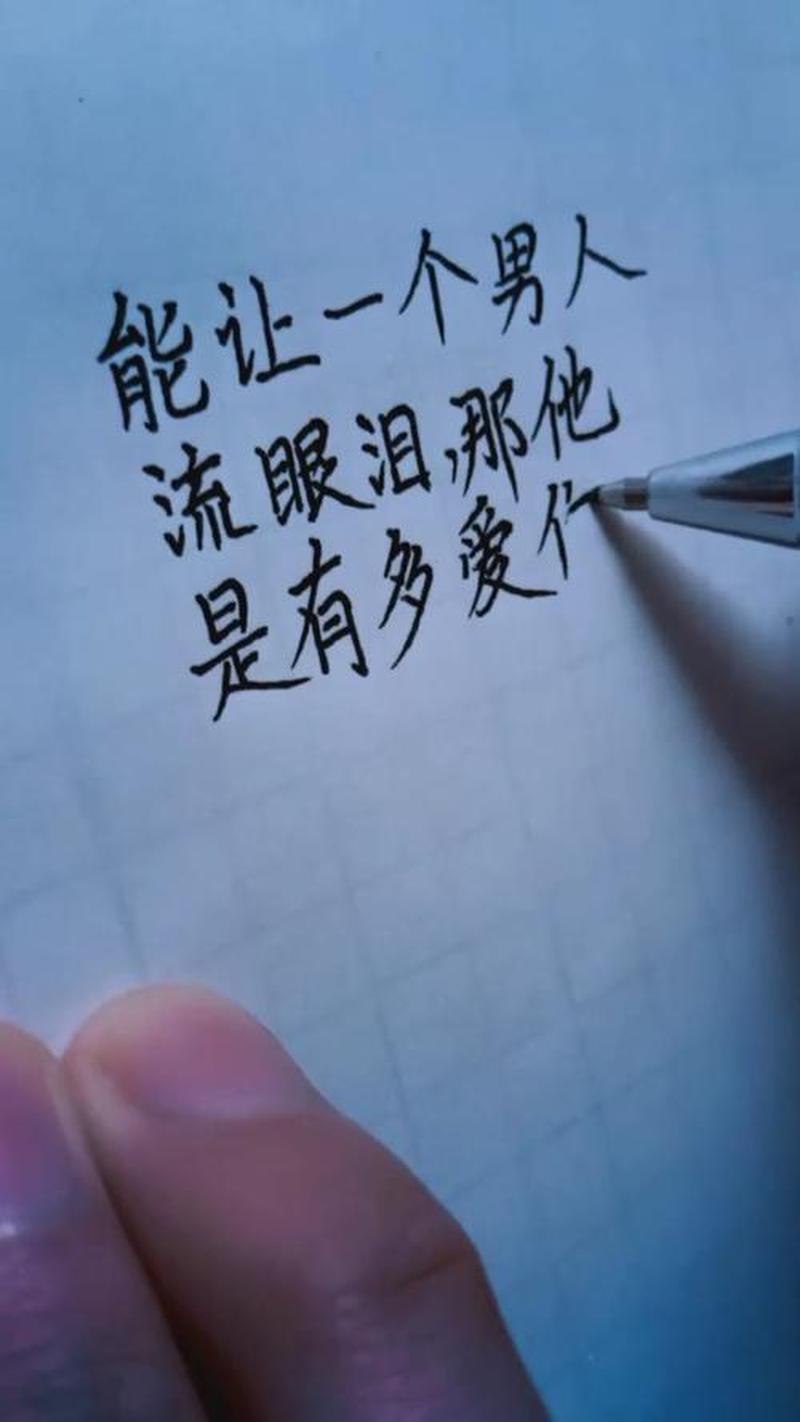 能让一个男人
流眼泪,那他
是有多爱